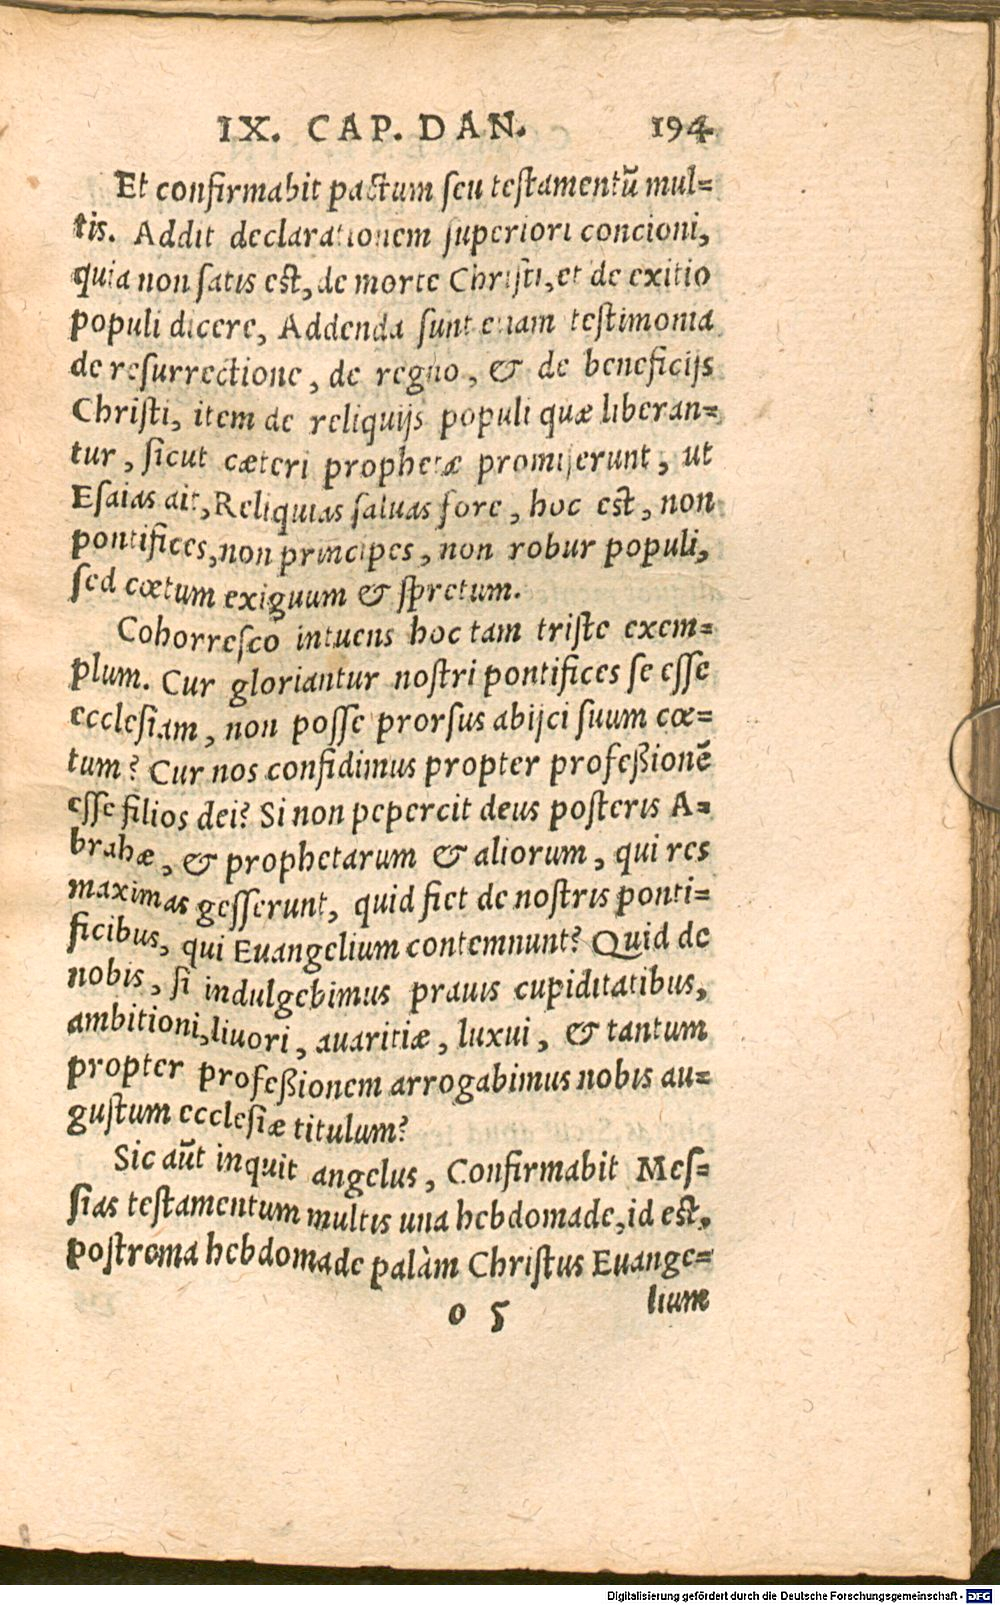 IX. CAP. DAN. 194
Et confirmabit pactum seu testamentũ mul=
tis. Addit declarationem superiori concioni,
quia non satis est, de morte Christi, et de exitio
populi dicere, Addenda sunt etiam testimonia
de resurrectione, de regno, & de beneficijs
Christi, item de reliquijs populi quæ liberan=
tur, sicut cæteri prophetæ promiserunt, ut
Esaias ait, Reliquias saluas fore, hoc est, non
pontifices, non principes, non robur populi,
sed cœtum exiguum & spretum.
Cohorresco intuens hoc tam triste exem=
plum. Cur gloriantur nostri pontifices se esse
ecclesiam, non posse prorsus abijci suum cœ=
tum? Cur nos confidimus propter profeßionẽ
esse filios dei? Si non pepercit deus posteris A=
brahæ, & prophetarum & aliorum, qui res
maximas gesserunt, quid fiet de nostris ponti=
ficibus, qui Euangelium contemnunt? Quid de
nobis, si indulgebimus prauis cupiditatibus,
ambitioni, liuori, auaritiæ, luxui, & tantum
propter profeßionem arrogabimus nobis au=
gustum ecclesiæ titulum?
Sic aũt inquit angelus, Confirmabit Mes=
sias testamentum multis una hebdomade, id est,
postrema hebdomade palàm Christus Euange=
o 5 lium
Digitalisierung gefördert durch die Deutsche Forschungsgemeinschaft - DFG